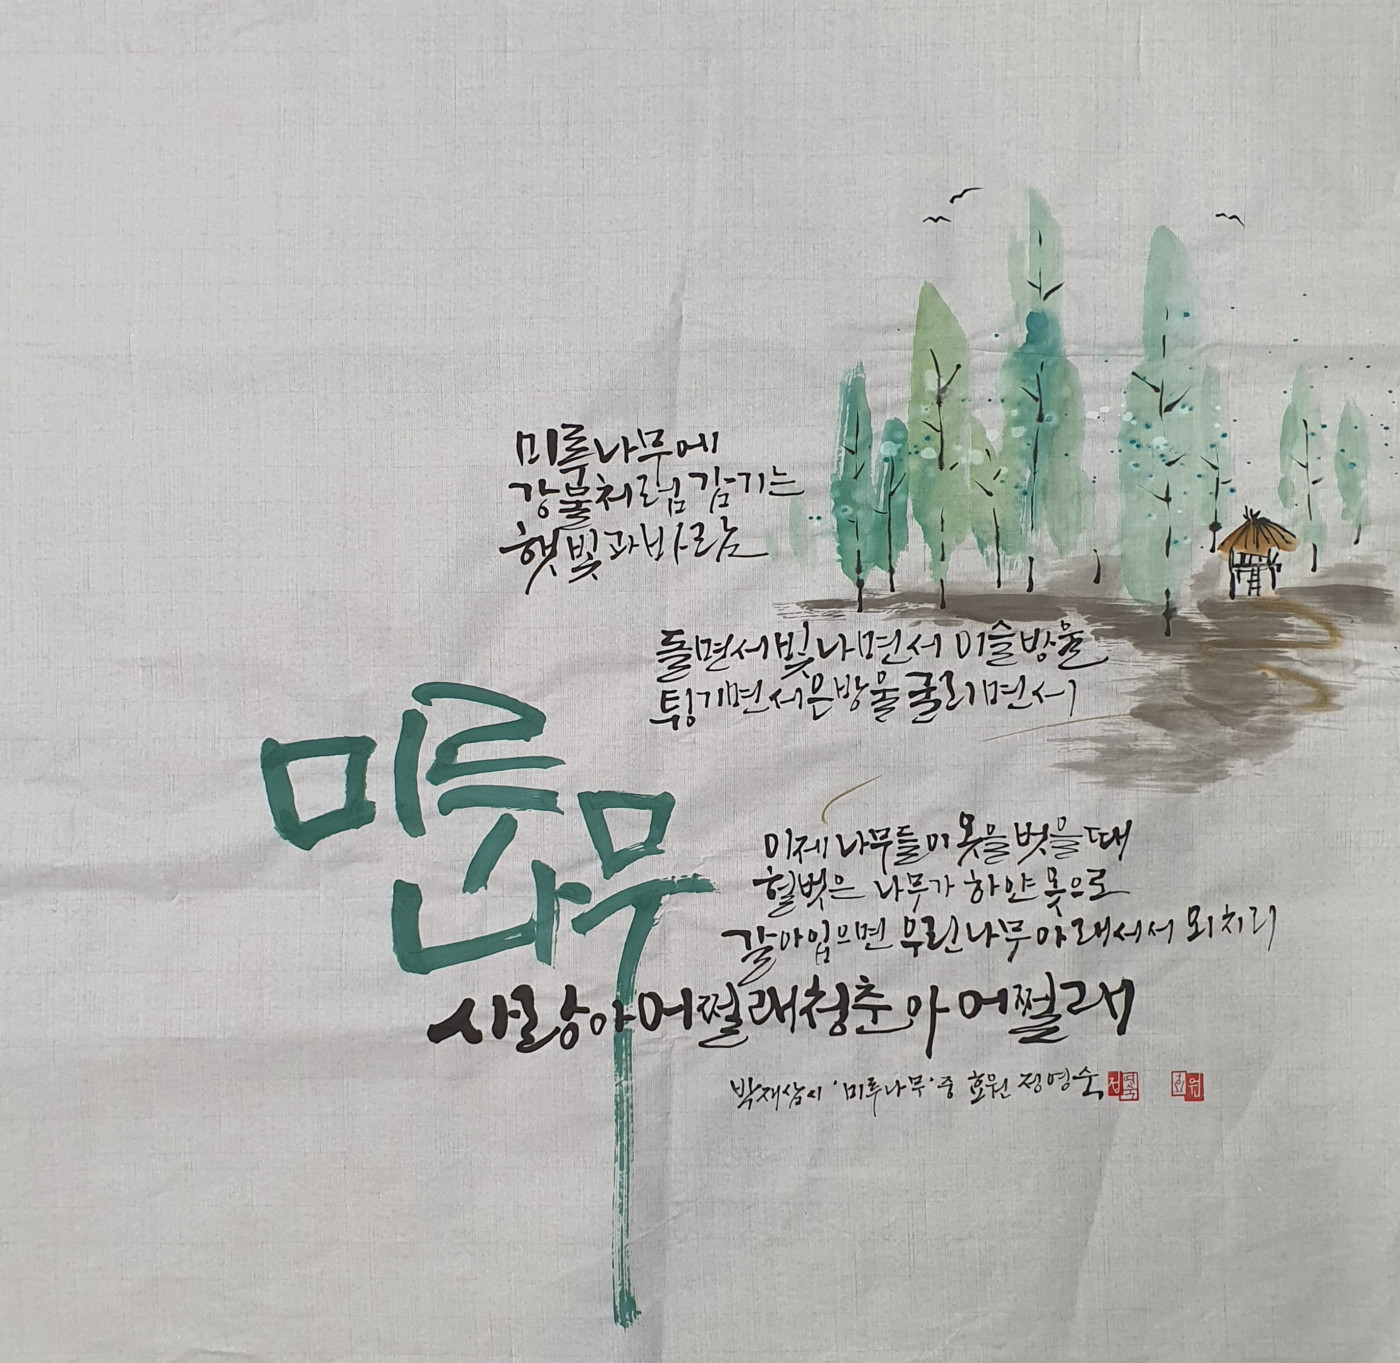 미루나무에
강물처럼 감기는
햇빛과 바람
돌면서 빛나면서 이슬방울
튕기면서 은방울 굴리면서
미루
나무
이제 나무들이 옷을 벗을 때
헐벗은 나무가 하얀 옷으로
갈아입으면 우린 나무 아래 서서 외치리
사랑아 어쩔래 청춘아 어쩔래
박재삼 시 '미루나무' 중 효원 정영숙